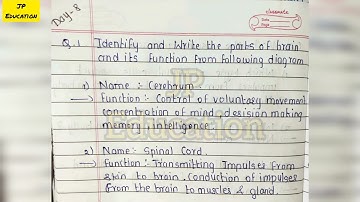 JP
EDUCATION
Day-8
classmate
Date
Page
Q.1 Identify and Write the parts of brain
and its function from following diagram
1) Name :- Cerebrum
→ Function:- Control of voluntary movement
concentration of mind, decision making
memory intelligence.
2) Name:- Spinal Cord.
→ Function:- Transmitting Impulses from
skin to brain. Conduction of impulses
from the brain to muscles & gland.
JP
Education